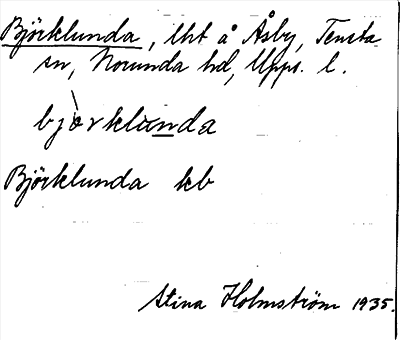 Björklunda, lht å Åsby, Tensta
sn, Norunda hd, Upps. l.
bjòrklunda
Björklunda kb
Stina Holmström 1935.